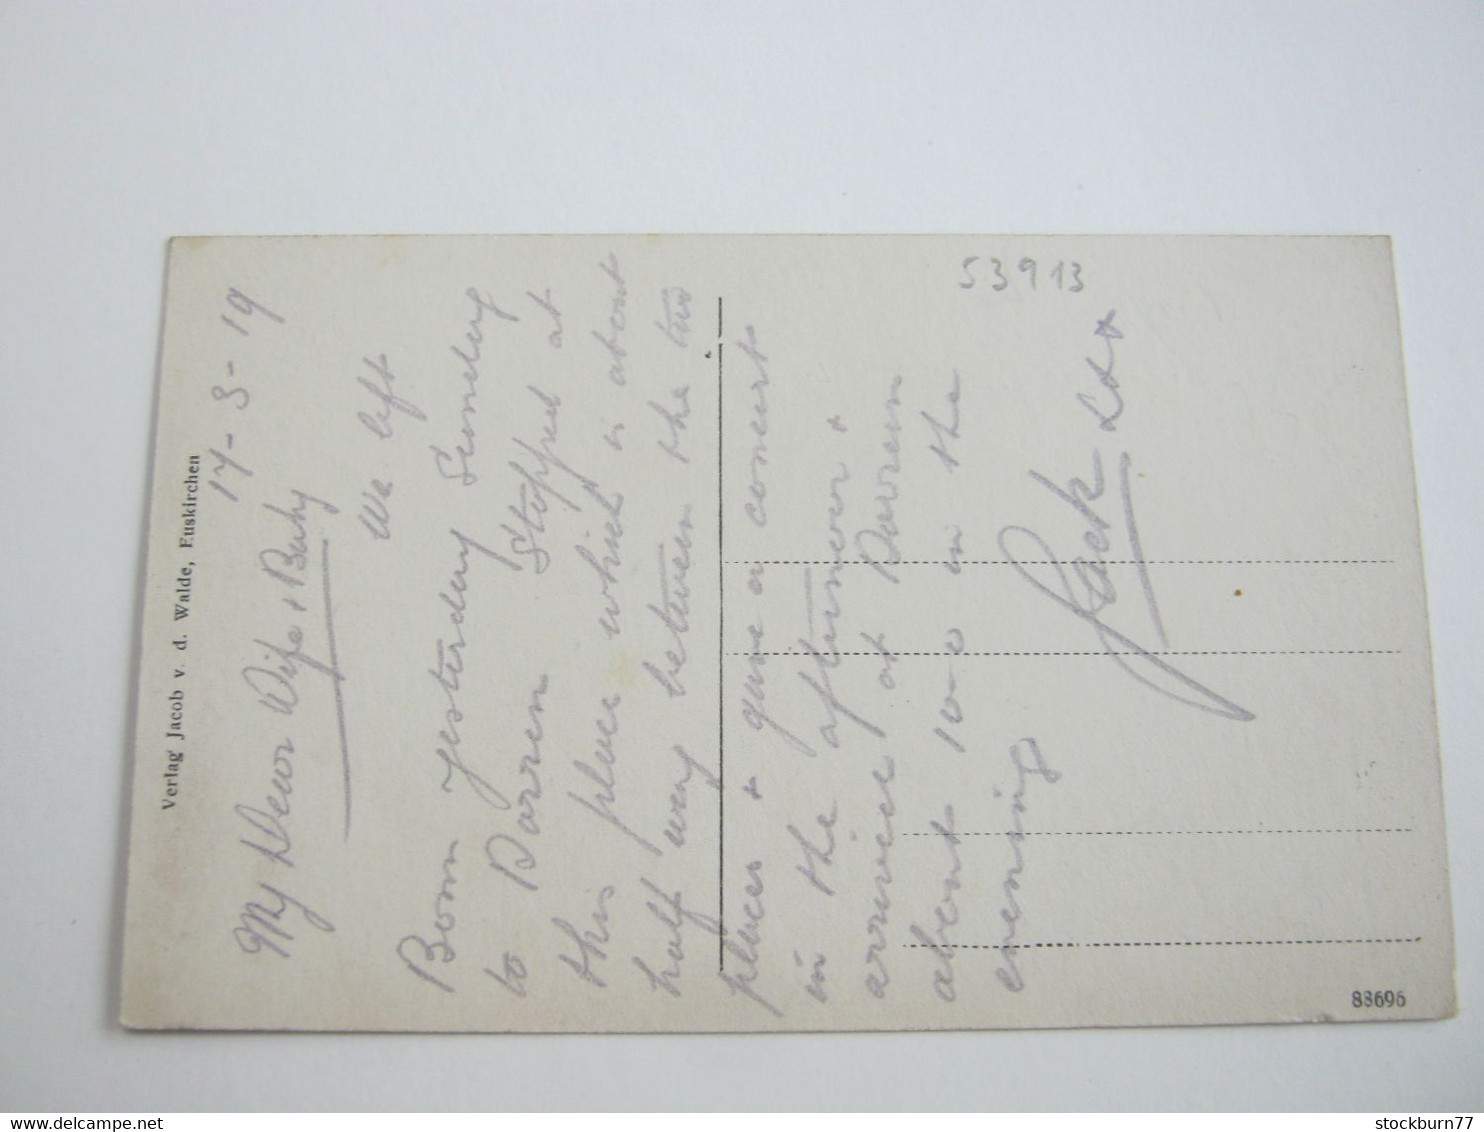 17-3-19
My Dear Wife & Baby
We left
Bonn yesterday Sunday
to Durren Stopped at
this place which is about
half way between the two
places & gave a concert
in the afternoon &
arrived at Durren
about 10-0 in the
evening
Jack
53913
Verlag Jacob v. d. Walde, Euskirchen
88696
stockburn77